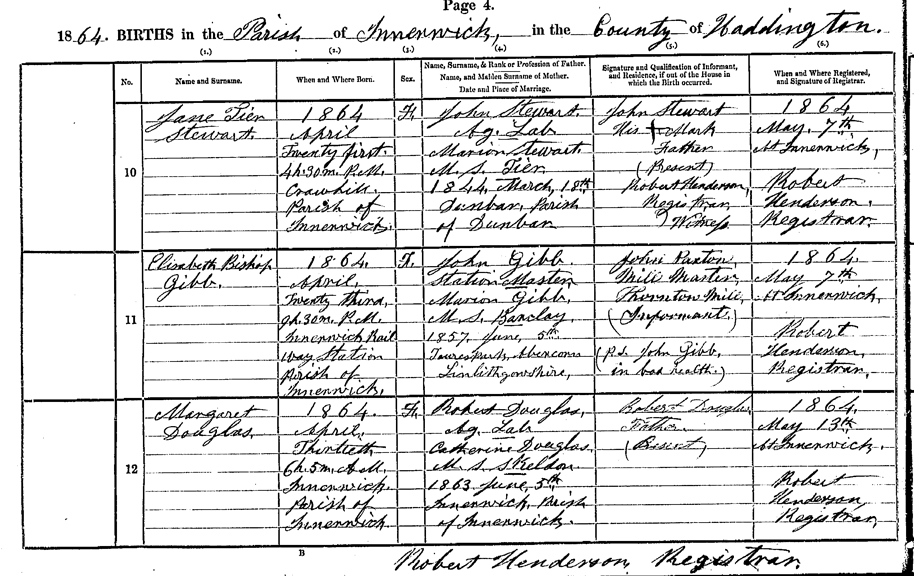 Page 4.
1864. BIRTHS in the Parish of Innerwick, in the County of Haddington.
(1.) (2.) (3.) (4.) (5.) (6.)
No.
Name and Surname.
When and Where Born.
Sex.
Name, Surname, & Rank or Profession of Father.
Name, and Maiden Surname of Mother.
Date and Place of Marriage.
Signature and Qualification of Informant,
and Residence, if out of the House in
which the Birth occurred.
When and Where Registered,
and Signature of Registrar.
10
Jane Tier
Stewart.
1864
April
Twenty first.
4h.30m. P.M.
Crawhill.
Parish of
Innerwick.
F.
John Stewart
Ag. Lab
Marion Stewart
M.S. Tier
1844. March, 18th
Dunbar, Parish
of Dunbar
John Stewart
His + Mark
Father
(Present)
Robert Henderson,
Registrar
Witness
1864
May. 7th
At Innerwick,
Robert
Henderson.
Registrar.
11
Elizabeth Bishop
Gibb.
1864.
April,
Twenty third,
9h.30m. P.M.
Innerwick Rail
way Station
Parish of
Innerwick.
F.
John Gibb
Station Master
Marion Gibb,
M.S. Barclay
1857. June, 5th
Abercorn
Linlithgowshire,
John Paxton
Mill Master
Thornton Mill,
(Informant.)
(p.s. John Gibb,
in bad health.)
1864
May 7th
At Innerwick,
Robert
Henderson,
Registrar.
12
Margaret
Douglas.
1864.
April,
Thirtieth
6h.5m. A.M.
Innerwick
Parish of
Innerwick
F.
Robert Douglas,
Ag. Lab
Catherine Douglas,
M.S. Skeldon
1863 June, 5th
Innerwick, Parish
of Innerwick.
Robert Douglas
Father
(Present)
1864.
May 13th
At Innerwick.
Robert
Henderson,
Registrar,
B
Robert Henderson Registrar.